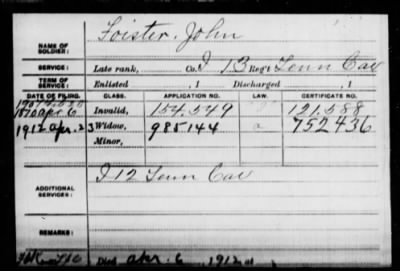 Foister, John
NAME OF SOLDIER:
SERVICE: Late rank, Co. I 13 Reg't Tenn Cav
TERM OF SERVICE: Enlisted , 1 Discharged , 1
DATE OF FILING. CLASS. APPLICATION NO. LAW. CERTIFICATE NO.
1870 Apr. 6 Invalid, 154.549 121.588
1912 Apr. 23 Widow, 985144 a 752436
Minor,
ADDITIONAL SERVICES: I 12 Tenn Cav
REMARKS:
Died Apr. 6, 1912 at